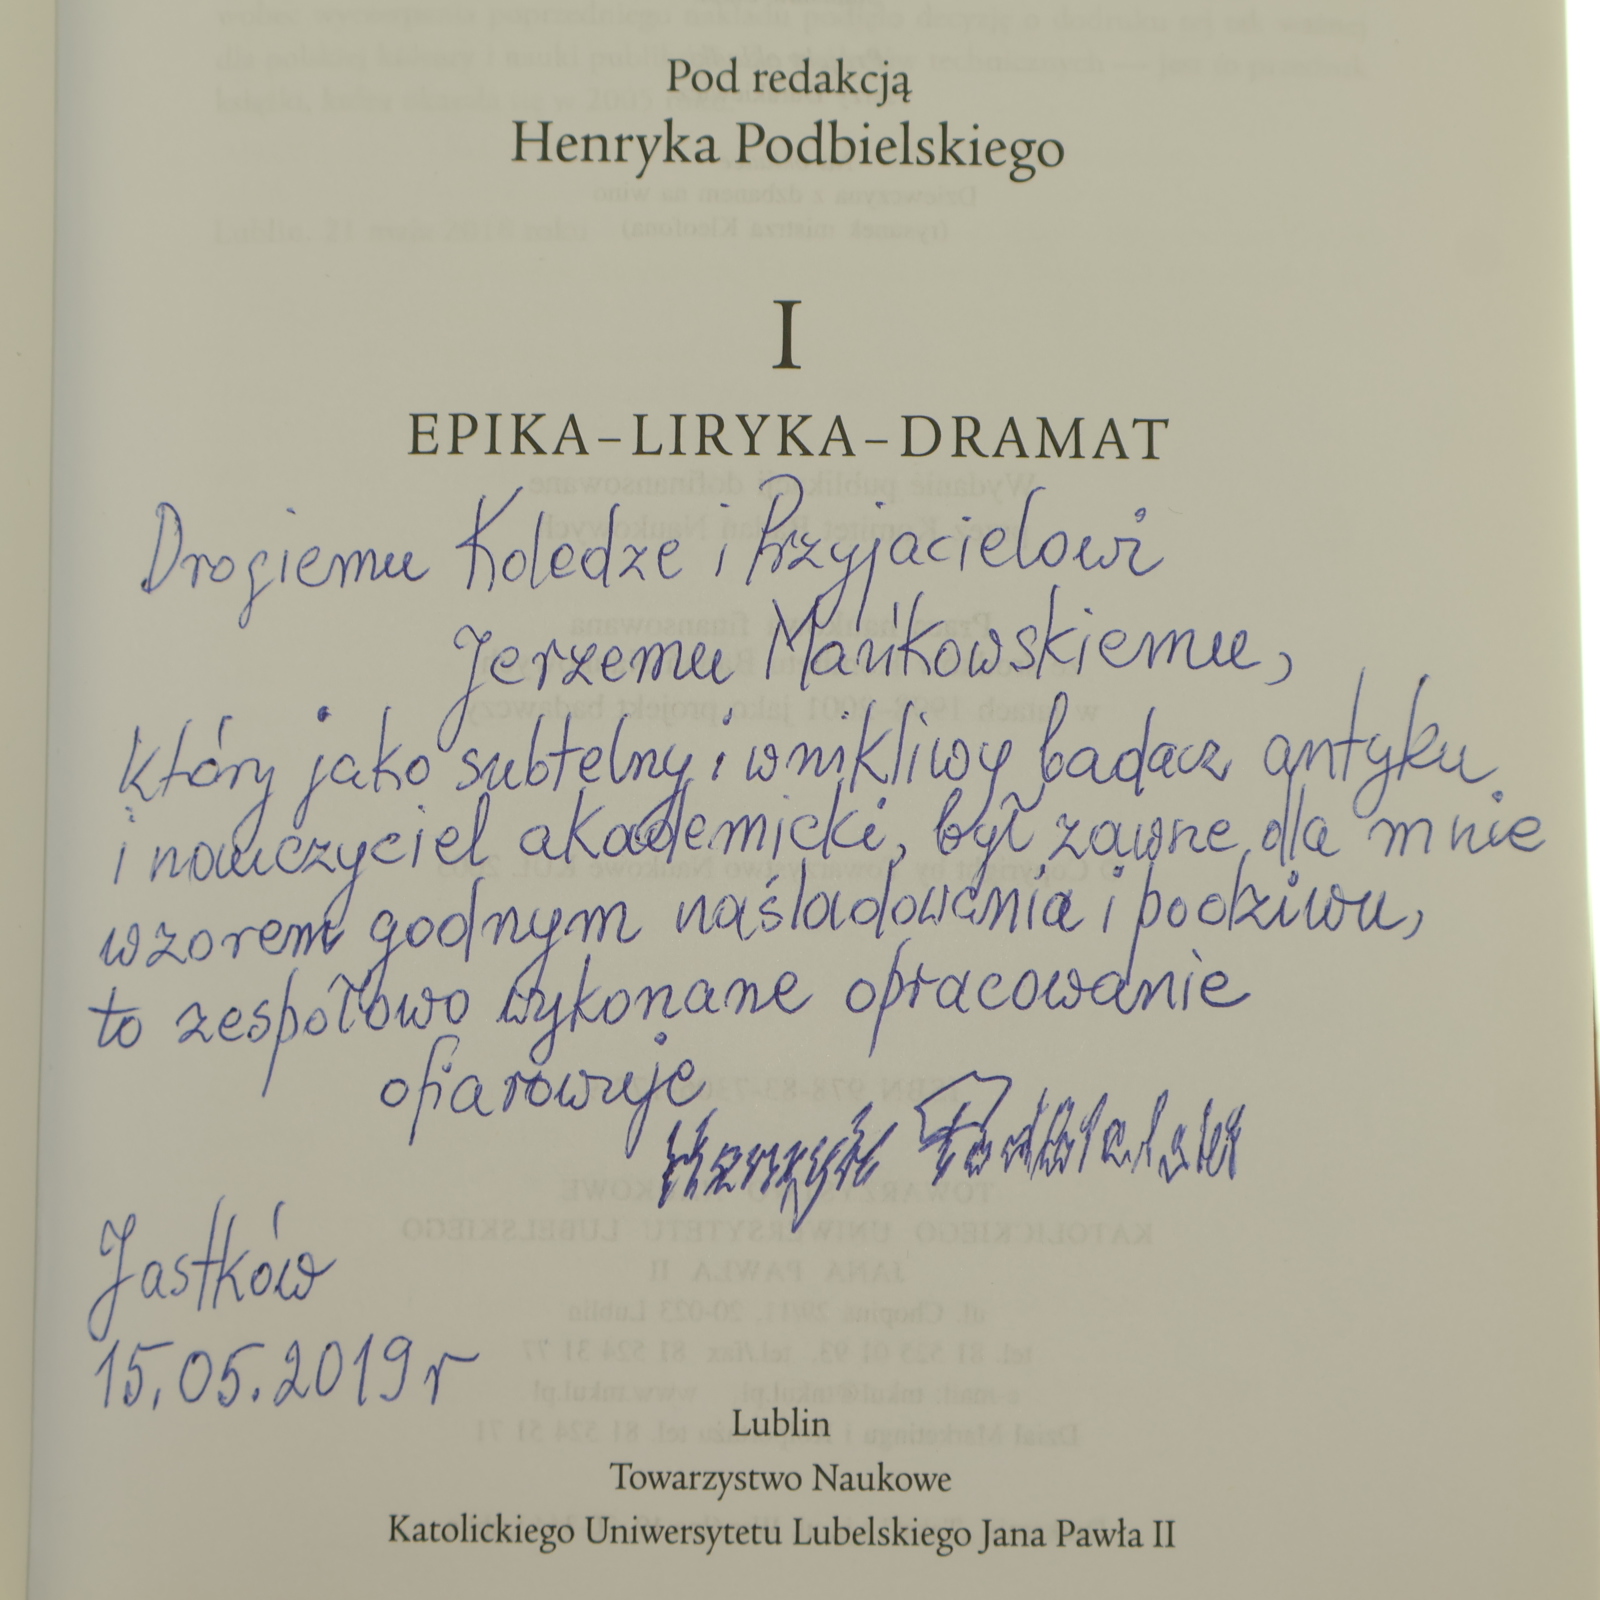 Pod redakcją
Henryka Podbielskiego
I
EPIKA–LIRYKA–DRAMAT
Drogiemu Koledze i Przyjacielowi
Jerzemu Mańkowskiemu,
który jako subtelny i wnikliwy badacz antyku
i nauczyciel akademicki, był zawsze dla mnie
wzorem godnym naśladowania i podziwu,
to zespołowo wykonane opracowanie
ofiarowuje
Henryk Podbielski
Jastków
15.05.2019 r
Lublin
Towarzystwo Naukowe
Katolickiego Uniwersytetu Lubelskiego Jana Pawła II